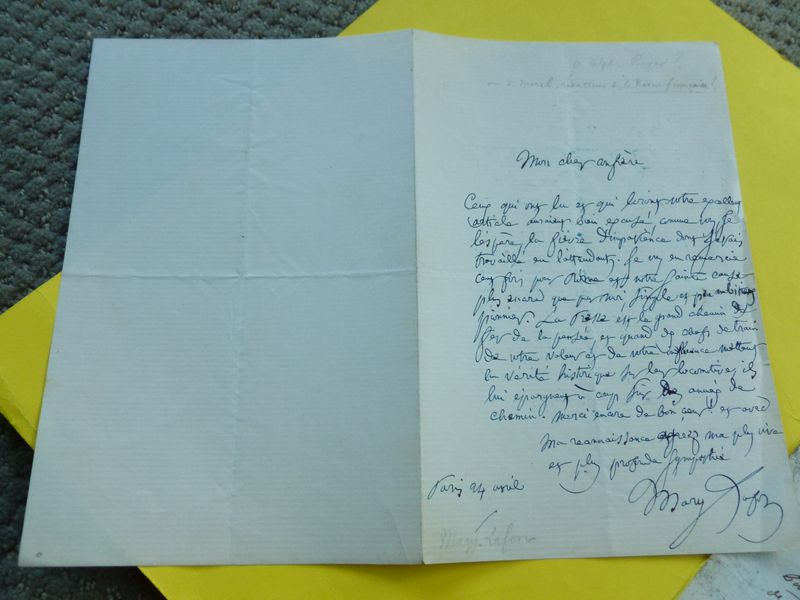 à Alph. Royer ?
ou à Morel, rédacteur de la Revue française !
Mon cher confrère
Ceux qui ont lu et qui liront votre excellent
article auraient bien excusé, comme vous je
l'espère, la fièvre d'impatience dont j'étais
travaillé en l'attendant. Je vous en remercie
cent fois pour Rome et notre sainte cause
plus encore que pour moi, simple et peu ambitieux
pionnier. La Presse est le grand chemin de
fer de la pensée, et quand des chefs de train
de votre valeur et de votre influence mettent
la vérité historique sur leurs locomotives ils
lui épargnent à coup sûr des années de
chemin. Merci encore de bon cœur ! et avec
ma reconnaissance agréez ma plus vive
et plus profonde sympathie
Paris 24 avril
Mary Lafon
Mary-Lafon